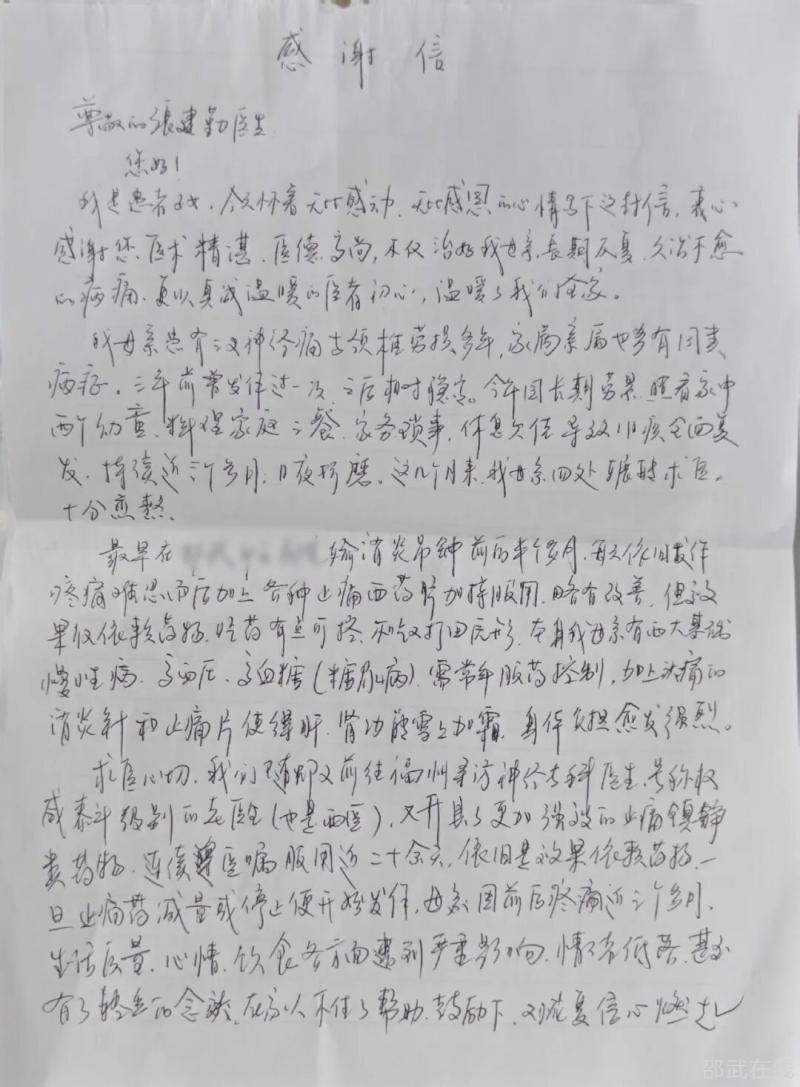 感谢信
尊敬的张建勤医生
您好！
我是患者子女，今天怀着无比感动、无比感恩的心情写下这封信，衷心
感谢您医术精湛、医德高尚，不仅治好我母亲长期反复、久治不愈
的病痛，更以真诚温暖的医者初心，温暖了我们全家。
我母亲患有三叉神经痛与颈椎劳损多年，家属亲属也多有同类
病症，三年前曾发作过一次，之后相对稳定。今年因长期劳累、照看家中
两个幼童、料理家庭三餐、家务琐事，休息欠佳导致旧疾全面复
发，持续近三个多月，日夜折磨。这几个月来，我母亲四处辗转求医。
十分煎熬。
最早在 输消炎吊针前后半个多月，每天依旧发作
疼痛难忍，而后加上各种止痛西药片加持服用，略有改善，但效
果仅依赖药物，吃药有点可控，不吃打回原形，本身我母亲有两大基础
慢性病、高血压、高血糖（糖尿病）需常年服药控制，加上治痛的
消炎针和止痛片使得肝、肾功能雪上加霜，身体负担愈发强烈。
求医心切，我们随即又前往福州寻访神经专科医生，号称权
威泰斗级别的老医生（也是西医），又开具了更加强效的止痛镇静
类药物，连续遵医嘱服用近二十余天，依旧是效果依赖药物，一
旦止痛药减量或停止便开始发作，母亲因前后疼痛近三个多月，
生活质量、心情、饮食各方面遭到严重影响，情绪低落，甚至
有了轻生的念头，在家人不住了帮助、鼓励下，对恢复信心燃起
邵武在线